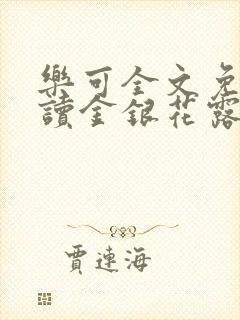 樂可全文免
讀金銀花露
賈連海